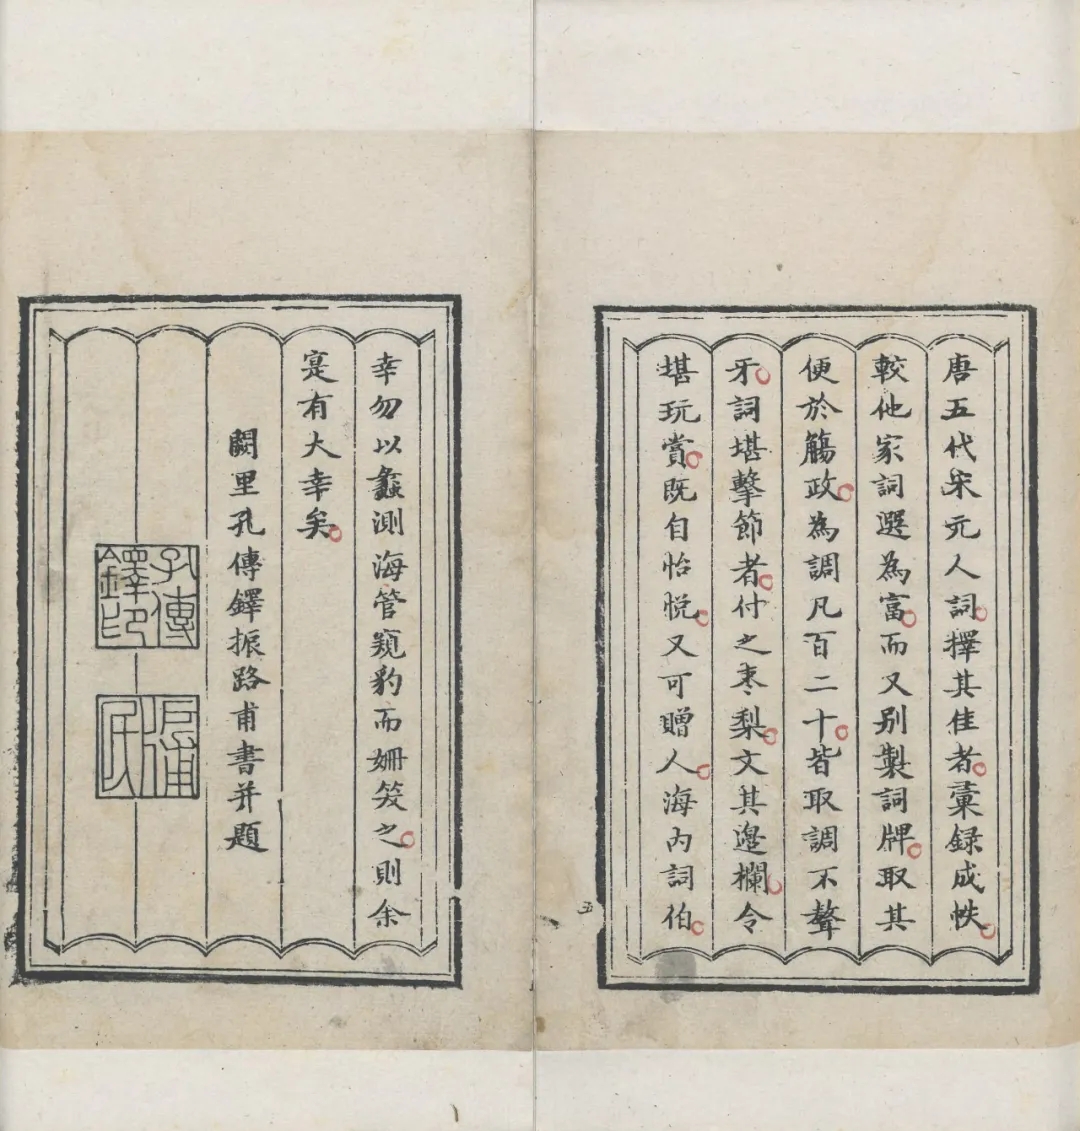 唐五代宋元人詞擇其佳者彙録成帙
較他家詞選為富而又别製詞牌取其
便於觴政為調凡百二十皆取調不聱
牙詞堪擊節者付之枣梨文其邉欄令
堪玩賞既自怡悦又可贈人海内詞伯
五
幸勿以蠡測海管窺豹而姍笑之則余
寔有大幸矣
闕里孔傳鐸振路甫書并題
孔傳鐸印